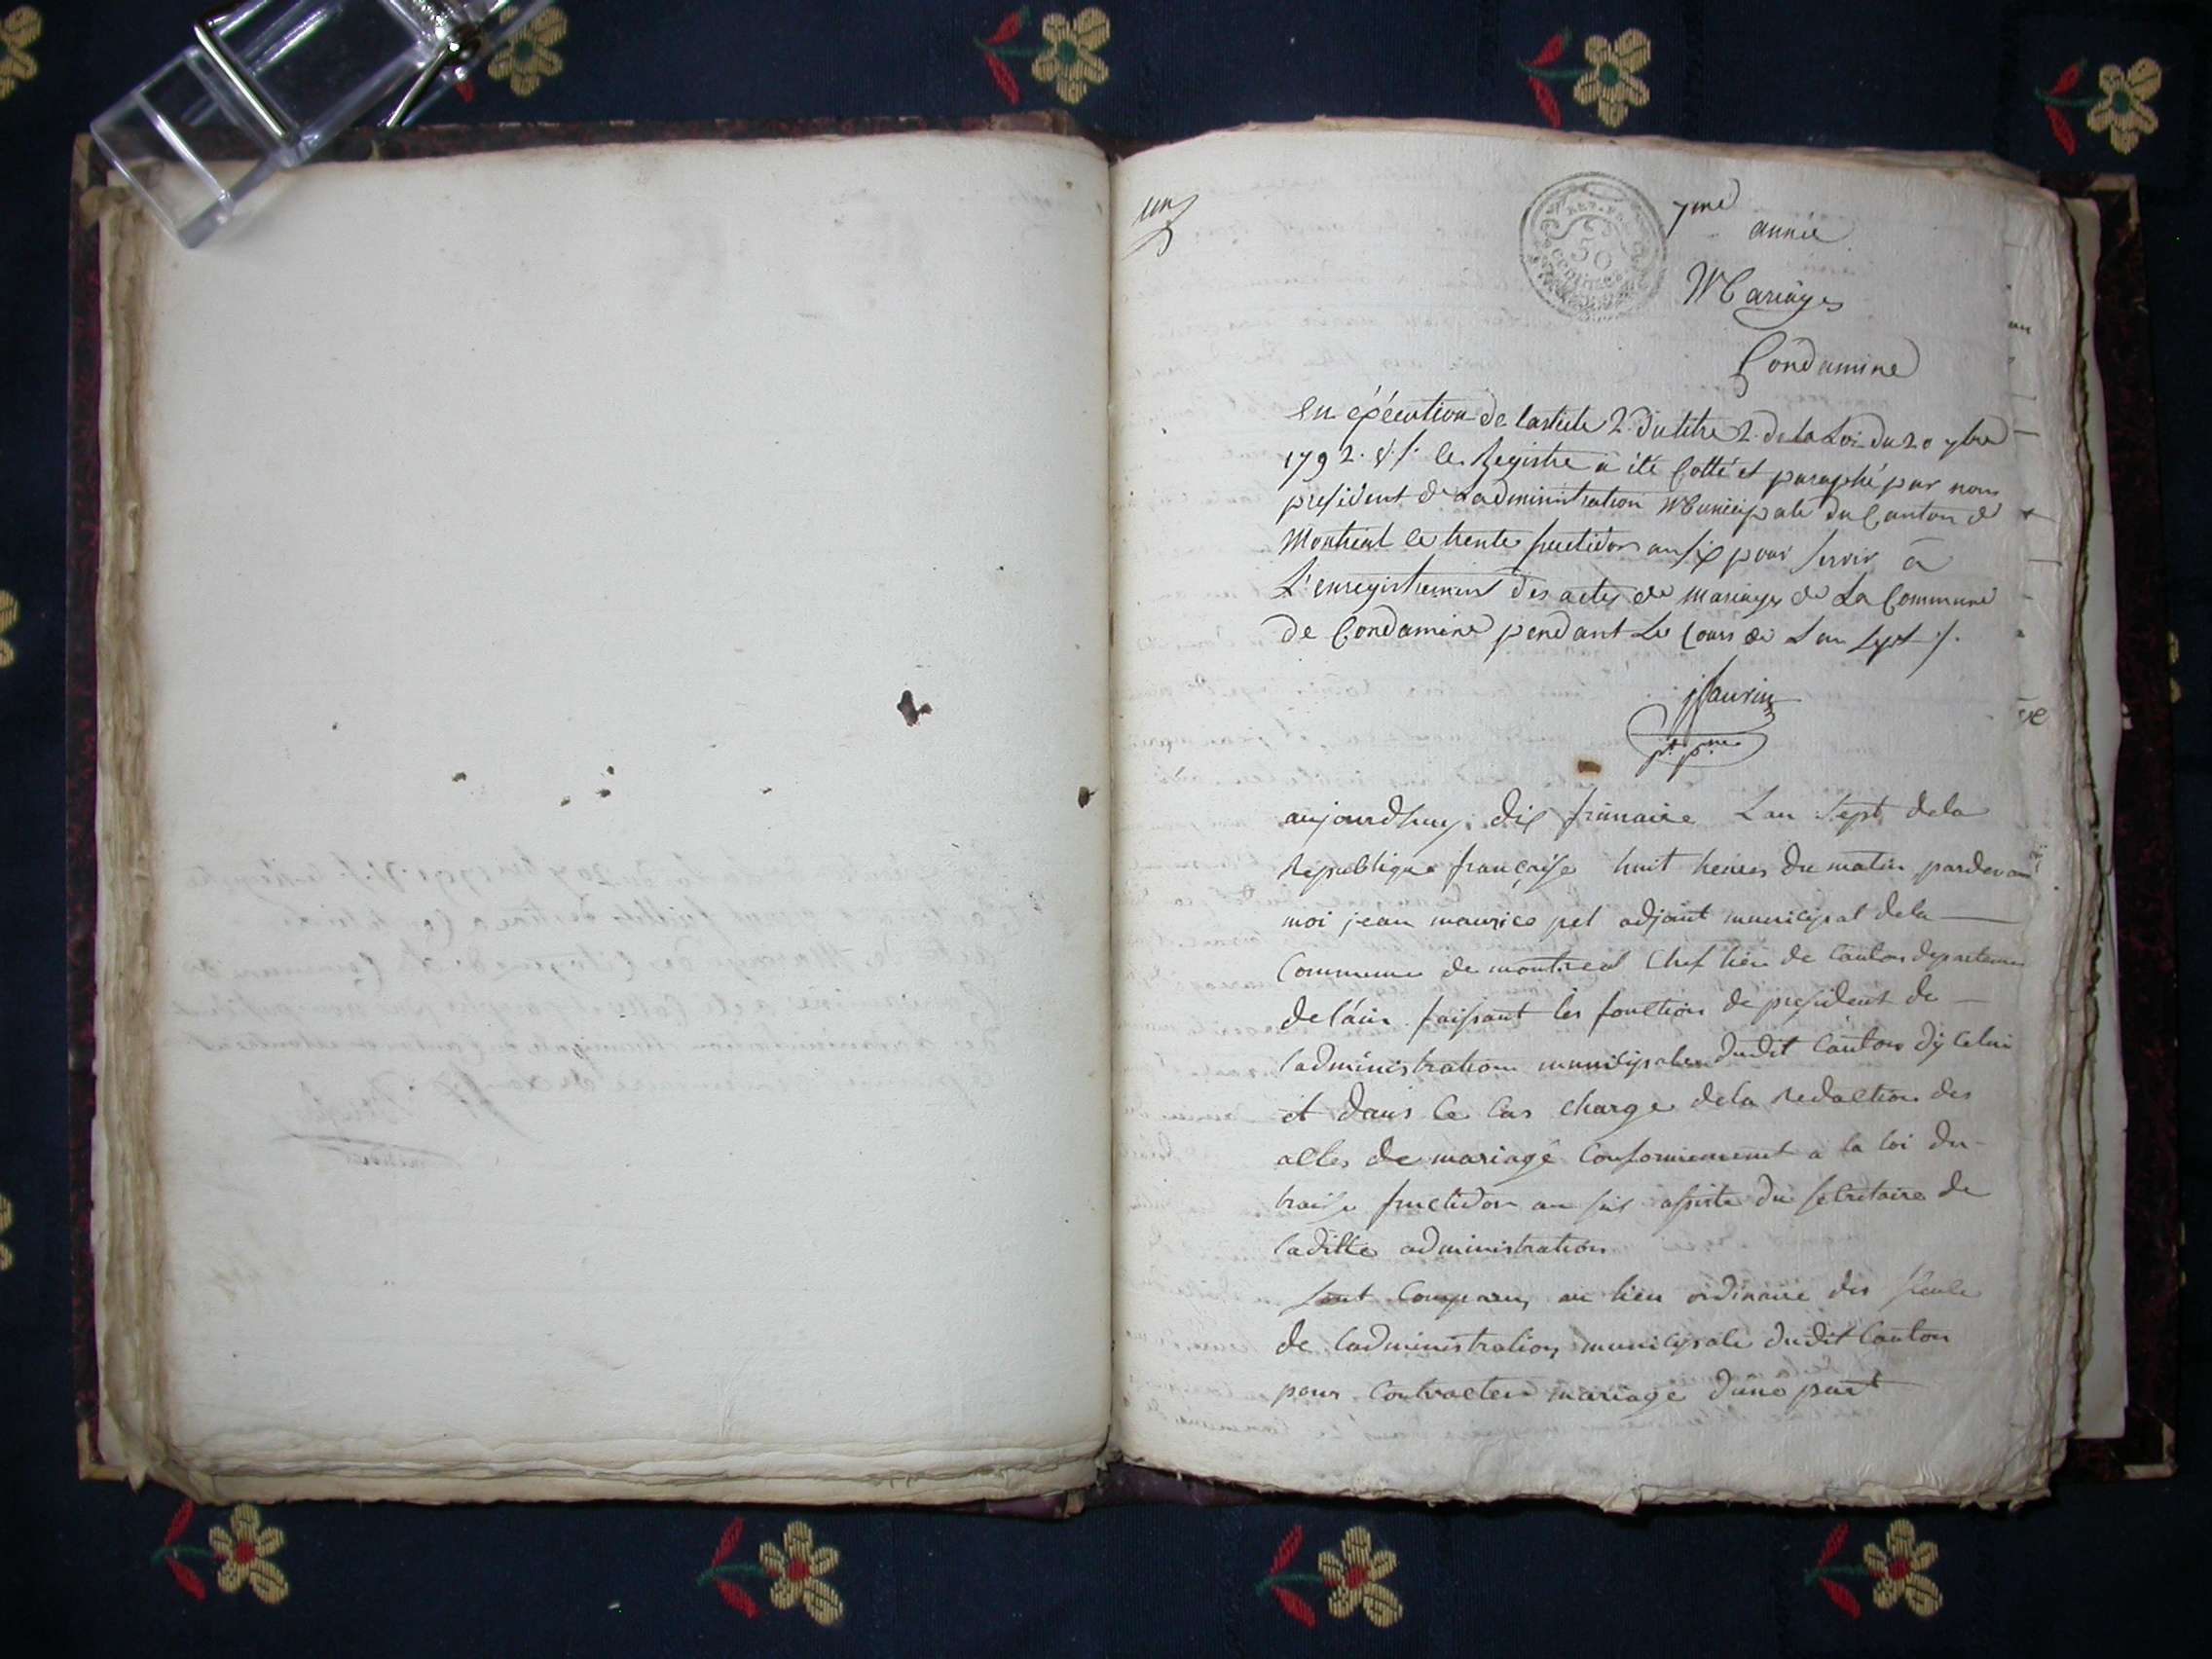 un
REP. FRA
50
centimes
7me
année
Mariages
Condamine
en exécution de l'article 2. du titre 2. de la Loi du 20 7bre
1792. v. s. ce Registre a été Cotté et paraphé par nous
president de Ladministration Municipale du Canton de
Montreal le trente fructidor an six pour servir à
L'enregistrement des actes de mariages de La Commune
de Condamine pendant Le Cours de L'an sept /.
aujourdhuy dix frimaire Lan sept dela
Republique française huit heures du matin pardevant
moi jean maurice pel adjoint municipal dela
Commune de montreal Chef lieu de Canton departement
de l'ain faisant les fonction de president de
l'administration municipale dudit Canton
et dans ce Cas charge dela redaction des
actes de mariage Conformement a la loi du
traise fructidor an six assisté du secretaire de
laditte administration
sont Comparus au lieu ordinaire des
de ladministration municipale dudit Canton
pour Contracter mariage dune part